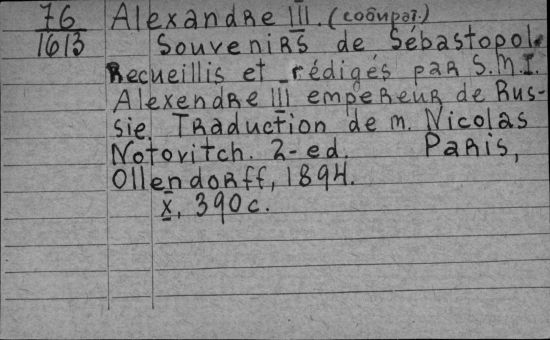 76 Alexandre III. (собират.)
1613 Souvenirs de Sébastopol.
Recueillis et rédigés par S.M.I.
Alexendre III empereur de Rus-
sie. Traduction de m. Nicolas
Notovitch. 2-ed. Paris,
Ollendorff, 1894.
X, 390 c.